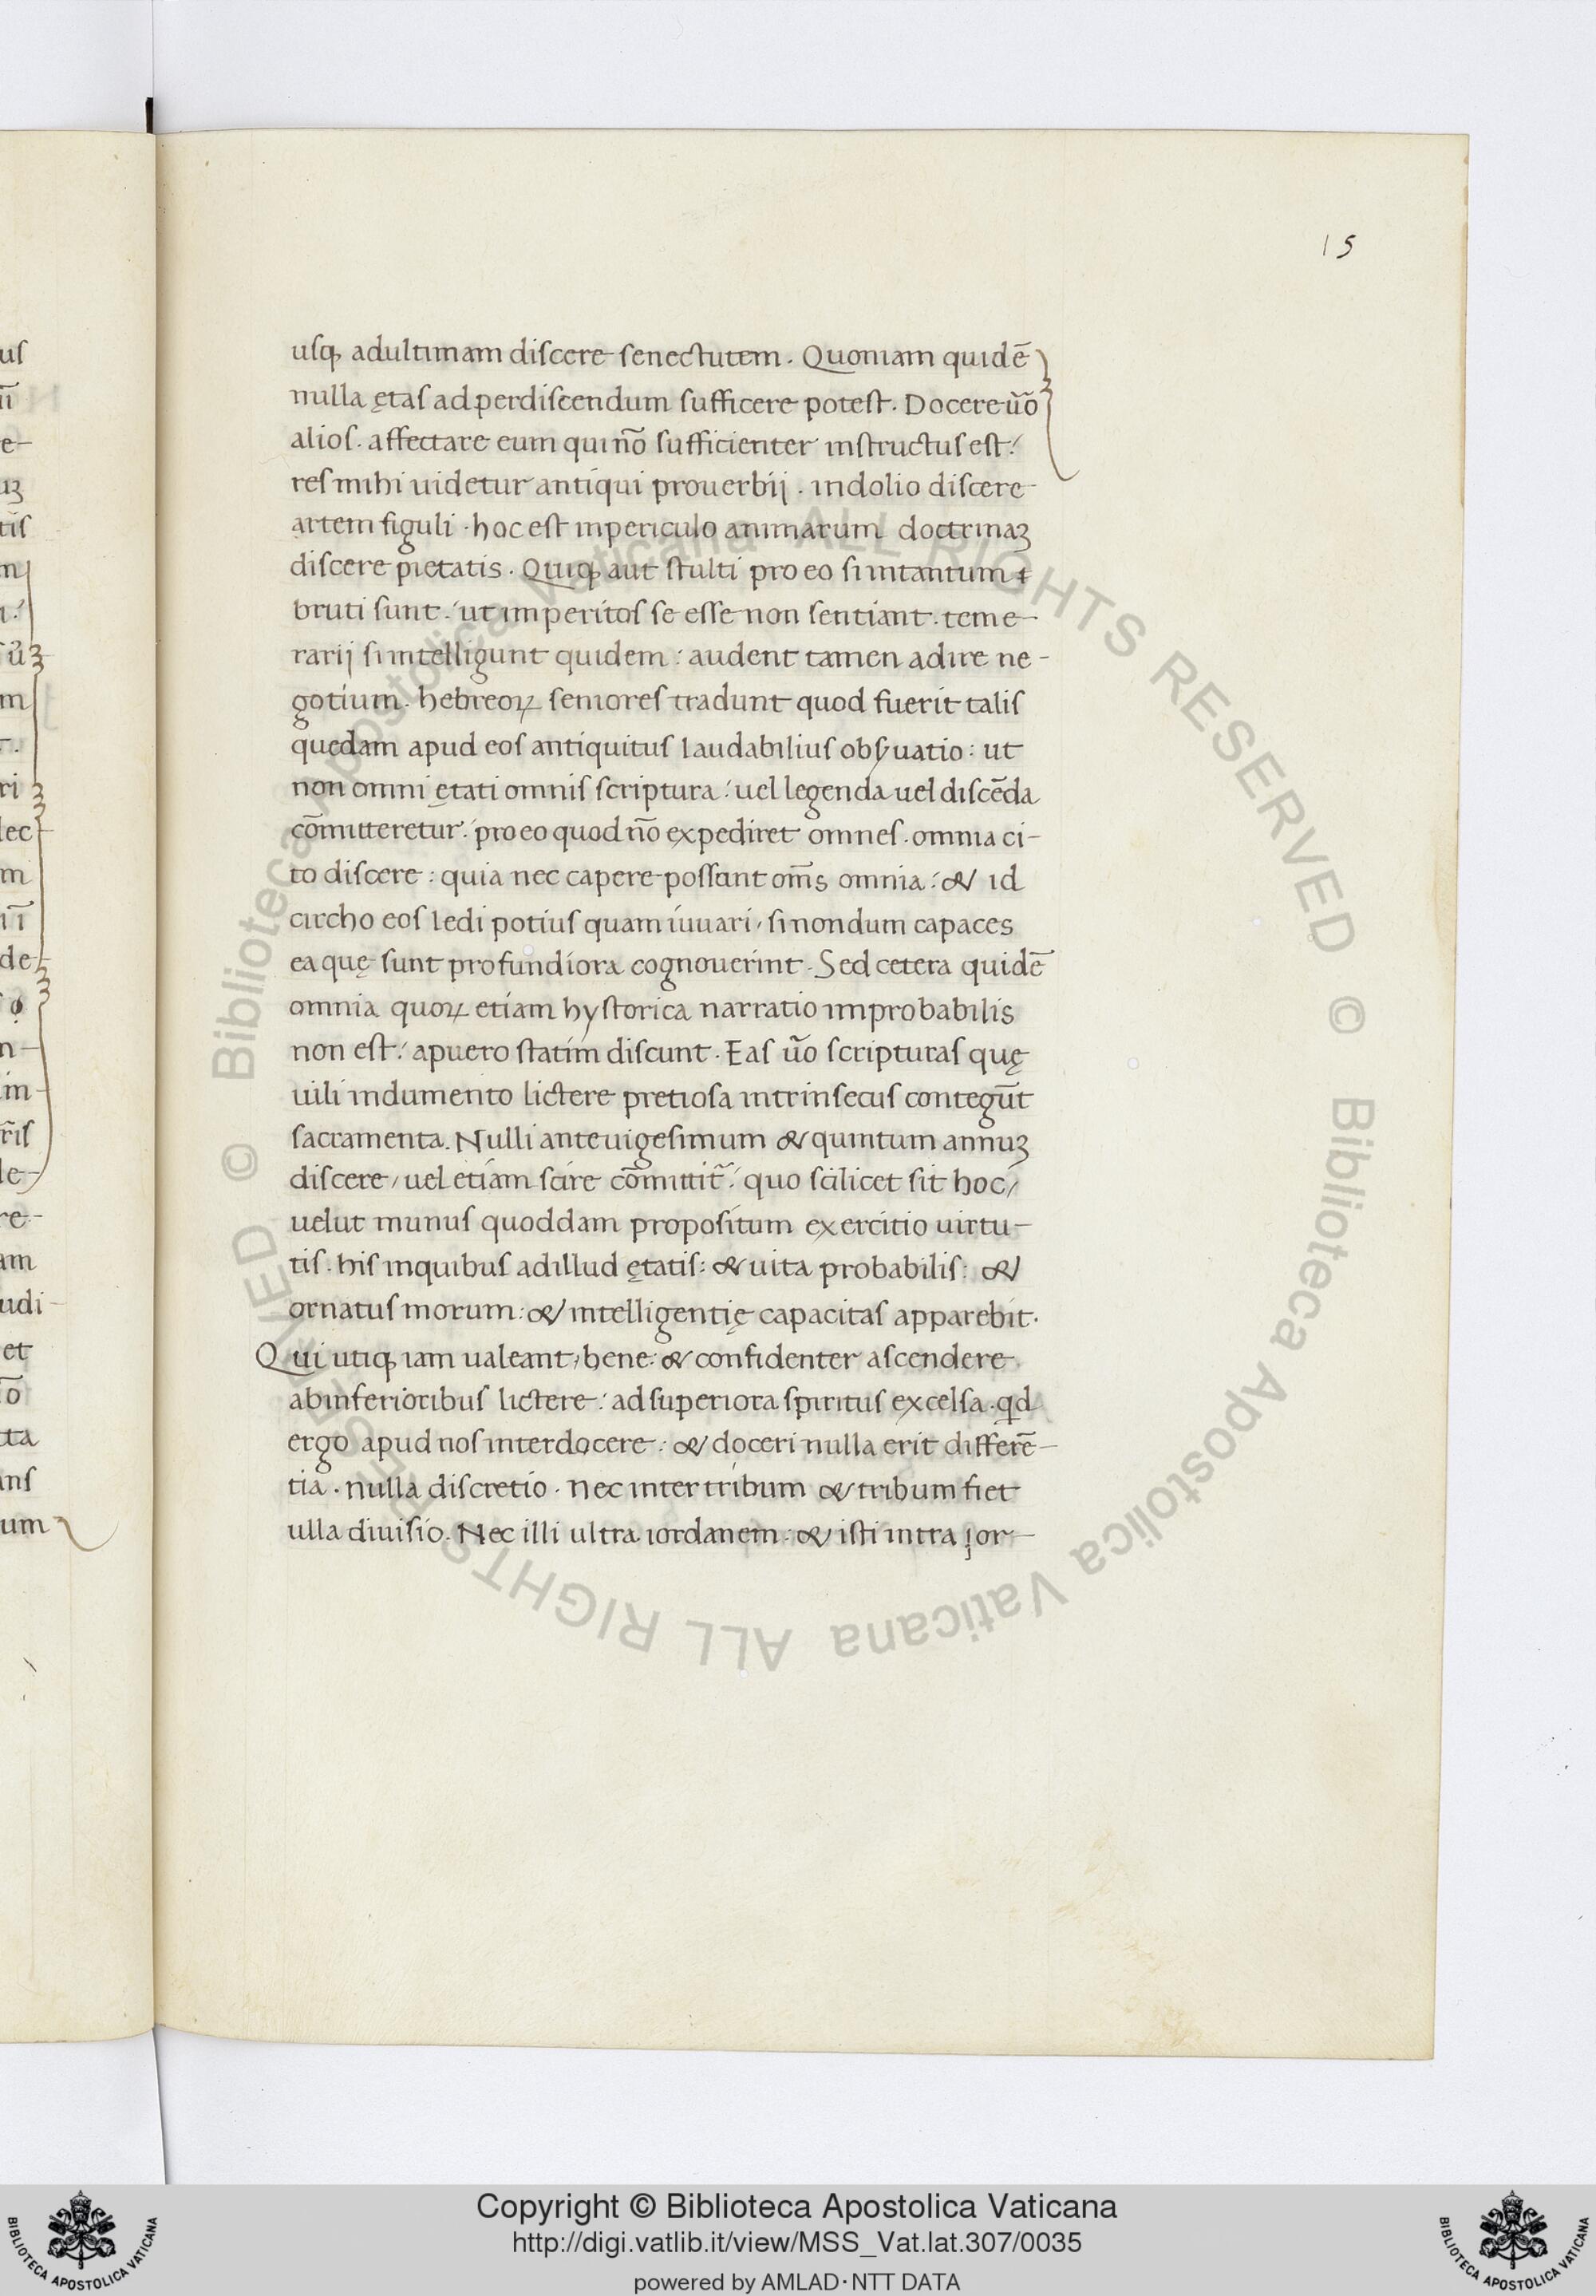 15
usqꝫ adultimam discere senectutem. Quoniam quidē
nulla ętas adperdiscendum sufficere potest. Docere ūo
alios. affectare eum qui nō sufficienter instructus est:
res mihi uidetur antiqui prouerbij. indolio discere
artem figuli. hoc est inpericulo animarum doctrinaꝫ
discere pietatis. Quiqꝫ aut stulti pro eo si intantum
bruti sunt: ut imperitos se esse non sentiant. teme-
rarij si intelligunt quidem: audent tamen adire ne-
gotium. hebreoꝝ seniores tradunt quod fuerit talis
quedam apud eos antiquitus laudabilius obsͬuatio: ut
non omni ętati omnis scriptura: uel legenda uel discēda
cōmitteretur: pro eo quod nō expediret omnes. omnia ci-
to discere: quia nec capere possunt om̄s omnia: & id
circho eos ledi potius quam iuuari, si nondum capaces
ea quę sunt profundiora cognouerint. Sed cetera quidē
omnia quoꝝ etiam hystorica narratio improbabilis
non est: apuero statim discunt. Eas ūo scripturas quę
uili indumento lictere pretiosa intrinsecus contegūt
sacramenta. Nulli ante uigesimum & quintum annuꝫ
discere, uel etiam scire cōmittit̃: quo scilicet sit hoc,
uelut munus quoddam propositum exercitio uirtu-
tis. his inquibus adillud ętatis: & uita probabilis: &
ornatus morum: & intelligentię capacitas apparebit.
Qui utiqꝫ iam ualeant, bene: & confidenter ascendere
abinferioribus lictere: ad superiora spiritus excelsa. qd
ergo apud nos interdocere: & doceri nulla erit differē-
tia. nulla discretio. Nec inter tribum & tribum fiet
ulla diuisio. Nec illi ultra iordanem: & isti intra jor-
us
e-
tis
m
ri
lec
m
de
n-
in-
le-
re-
am
udi-
et
ō
tta
ans
um
© Biblioteca Apostolica Vaticana ALL RIGHTS RESERVED © Biblioteca Apostolica Vaticana ALL RIGHTS RESERVED
Copyright © Biblioteca Apostolica Vaticana
http://digi.vatlib.it/view/MSS_Vat.lat.307/0035
powered by AMLAD·NTT DATA
BIBLIOTECA APOSTOLICA VATICANA
BIBLIOTECA APOSTOLICA VATICANA